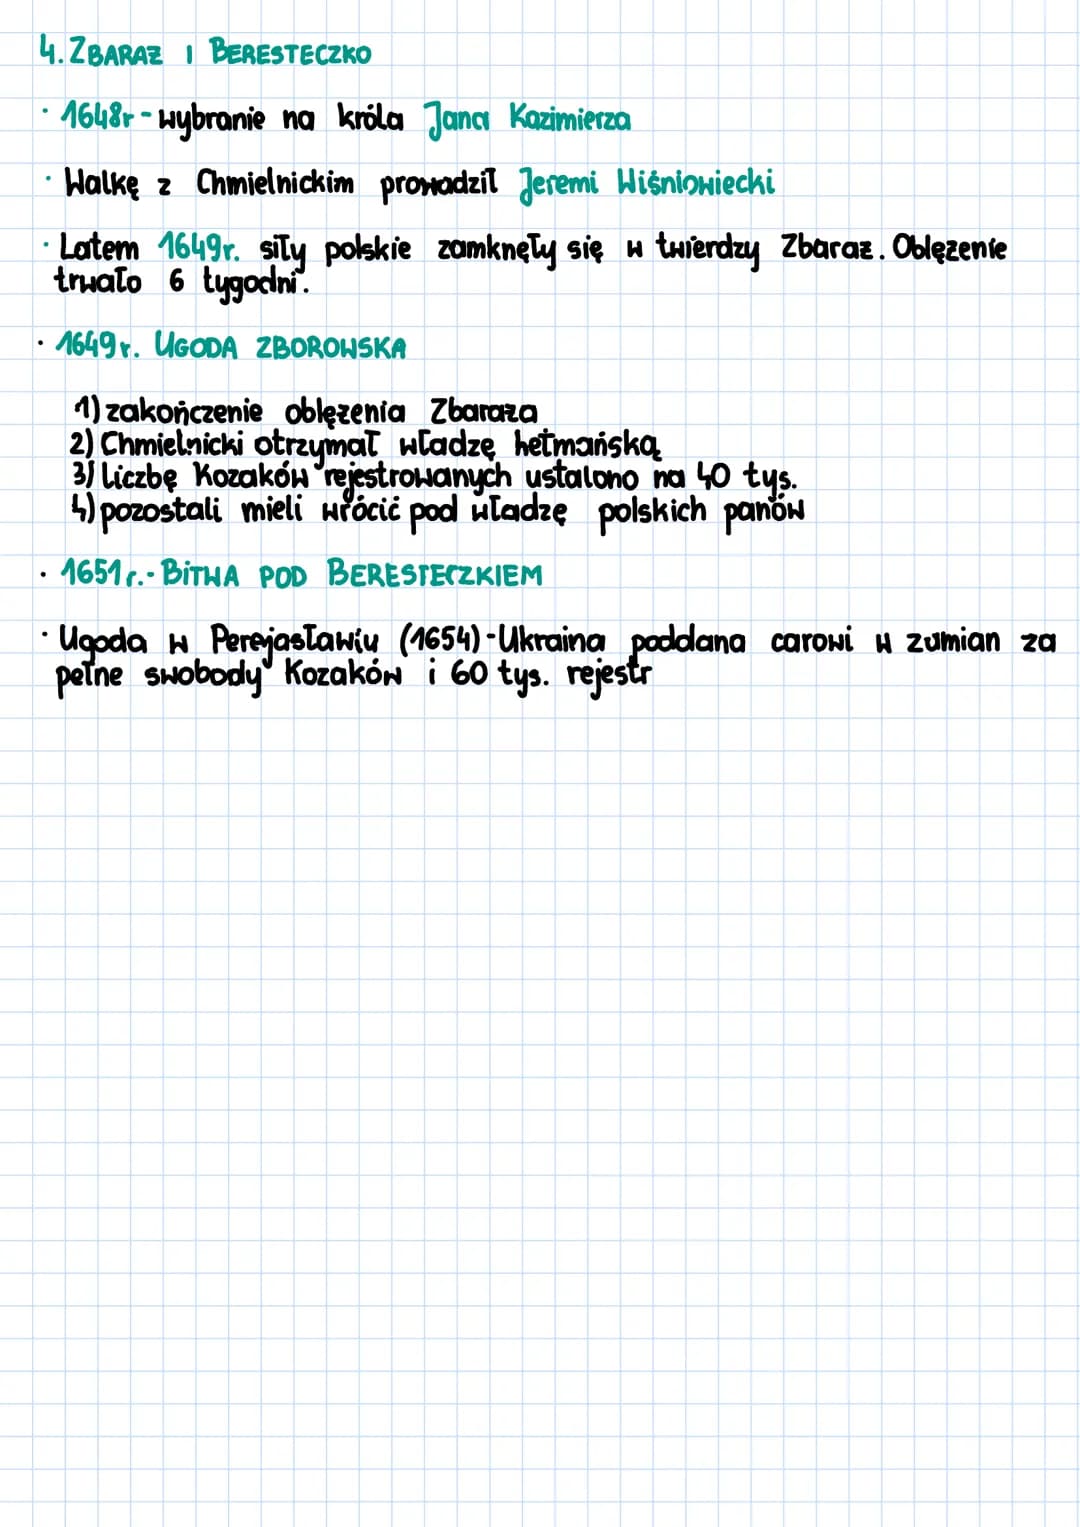 4. ZBARAŻ I BERESTECZKO
· 1648r - wybranie na króla Jana Kazimierza
· Walkę z Chmielnickim prowadził Jeremi Wiśniowiecki
· Latem 1649r. siły polskie zamknęły się w twierdzy Zbaraż. Oblężenie
trwało 6 tygodni.
· 1649r. UGODA ZBOROWSKA
1) zakończenie oblężenia Zbaraża
2) Chmielnicki otrzymał władzę hetmańską
3) Liczbę Kozaków rejestrowanych ustalono na 40 tys.
4) pozostali mieli wrócić pod władzę polskich panów
· 1651r. - BITWA POD BERESTECZKIEM
· Ugoda w Perejasławiu (1654) - Ukraina poddana carowi w zumian za
pełne swobody Kozaków i 60 tys. rejestr